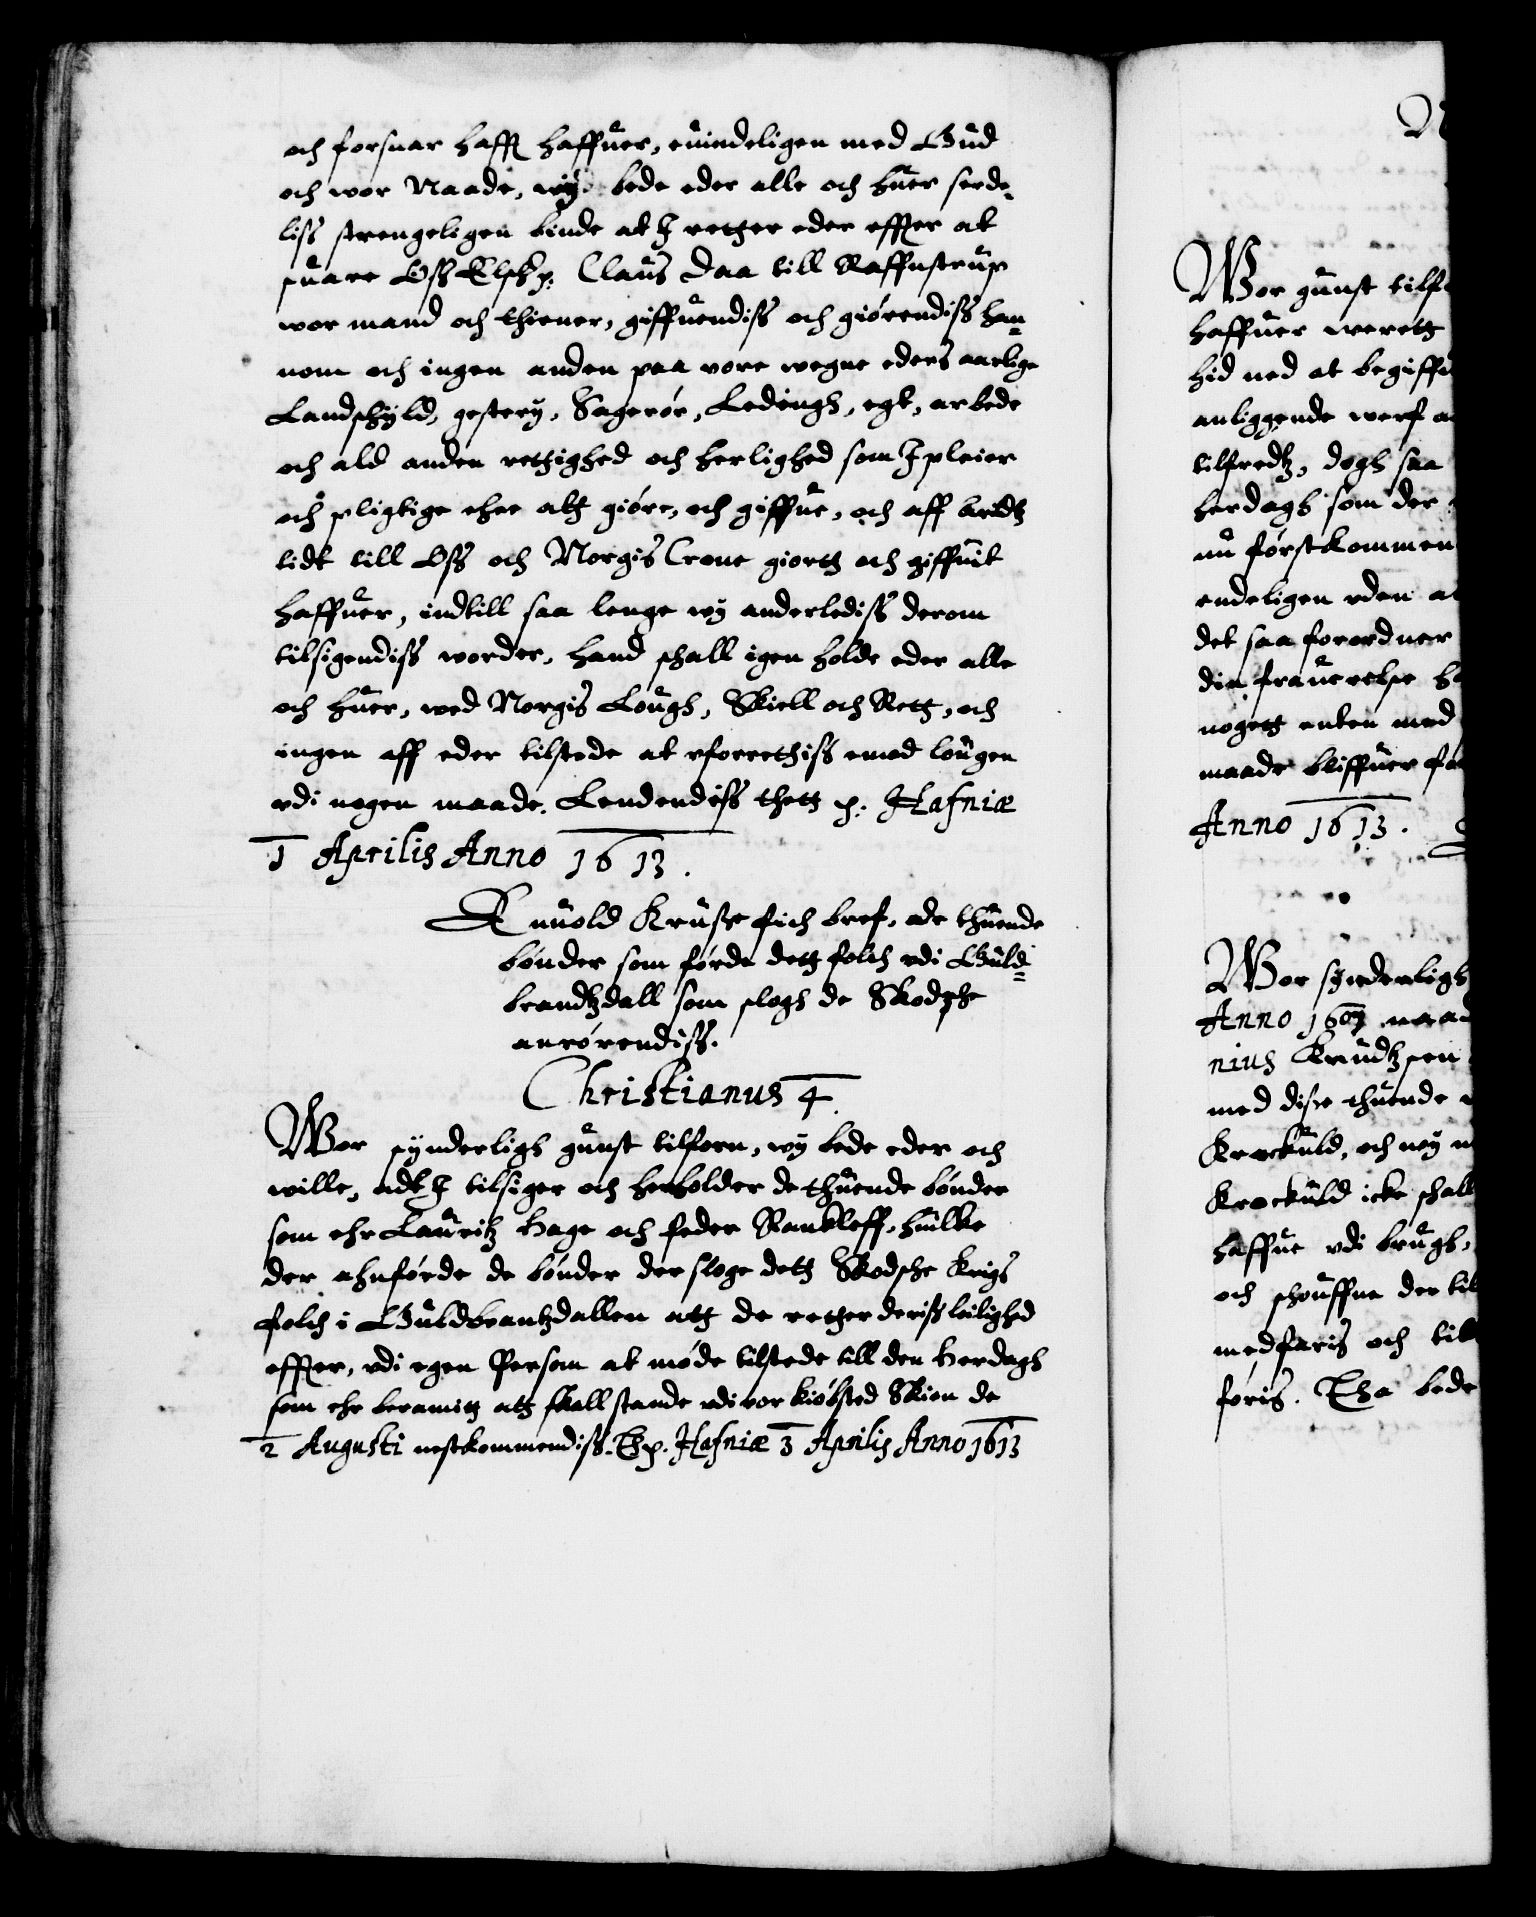 och forsuar hafft haffuer, euindeligen med Gud
och wor Naade, wÿ bede eder alle och huer serde-
liss strengeligen binde at I retther eder effter at
suare Oss Elsch: p: Claus Daa till Raffnstrup
wor mand och thiener, giffuendiss och giørendiss han-
nom och ingen anden paa vore wegne eders aarlige
Landschÿld, gesterÿ, Sagerør, Ledingh, egt, arbede
och ald anden retthighed och herlighed som I pleier
och pligtige ehre att giøre, och giffue, och aff areldtz
tidt till Oss och Norgis Crone giortt och giffuit
haffuer, indtill saa lenge wÿ anderlediss derom
tilsigendiss worder, hand schall igen holde eder alle
och huer, wed Norgis Lough, Skiell och Rett, och
ingen aff eder tilstede at vforretthiss emod lougen
vdi nogen maade. Lendendiss thett p: Hafniæ
1 Aprilis Anno 1613.
Enuold Kruse fich bref, om thuende
bønder som førde dett folch vdi Guld-
brandtzdall som slogh de Skodzhe
anrørendiss.
Christianus 4.
Wor sÿnderligh gunst tilforn, wÿ bede eder och
wille, adt I tilsiger och herholder de thuende bønder
som ehr Lauritz Hage och Peder Rankleff, huilke
der ahnførde de bønder der sloge dett Skodsche Krigs
folch i Guldbrantzdallen att de retther deriss leilighed
effter, vdi egen Person at møde tilstede till den Herdagh
som ehr beramitt att skall stande vdi vor kiøbsted Skien de
2 Augusti nestkommendiss. Thp. Hafniæ 3 Aprilis Anno 1613
Wor gunst tilf
haffuer werett
hid ned at begiffu
anliggende werf a
tilfredtz, dogh saa
herdagh som der
nu førstkommen
endeligen vden a
det saa forordner
din frauerelse h
nogett enten med
maade bliffuer fo
Anno 1613.
Wor sÿnderligh
Anno 1607 naa
nius Knudtzsen
med disse thuende
Krockuld, och noÿ
Krockuld icke schall
haffue vdi brugh,
och schouffue der til
medfaris och till
føris. Tha bede